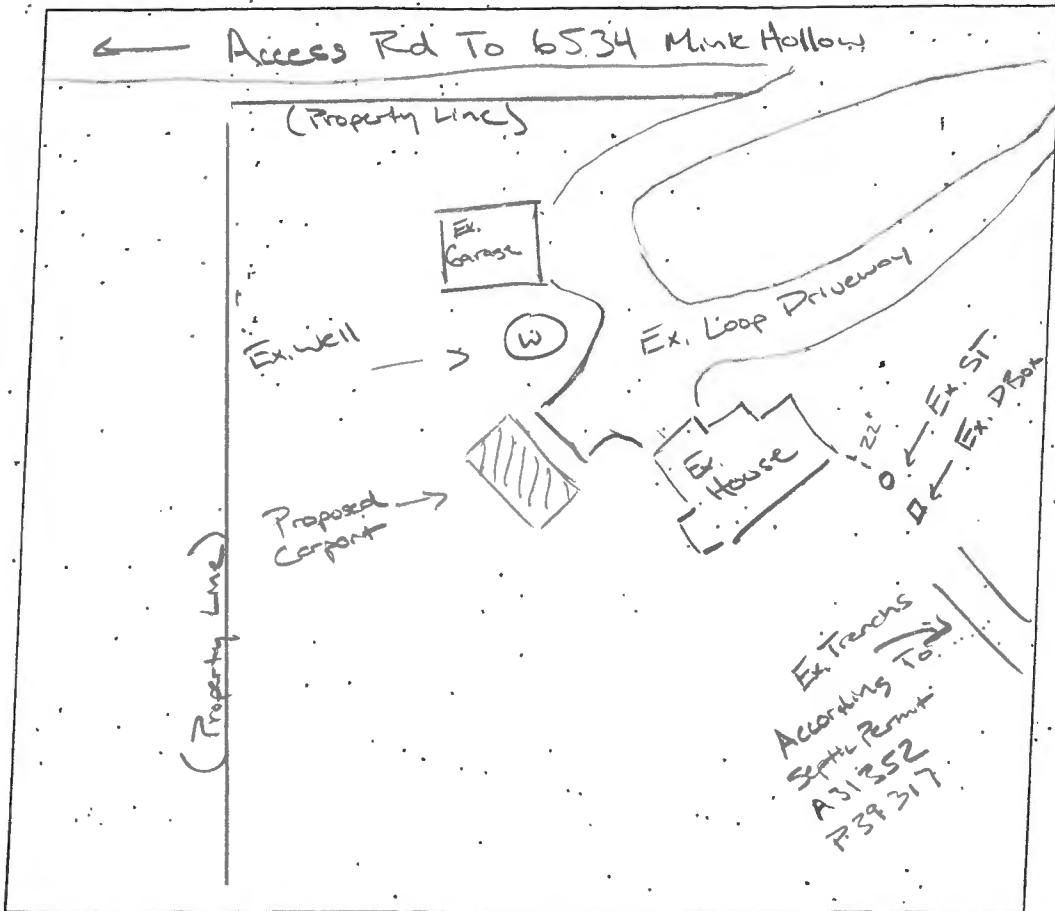 Access Rd To 6534 Mink Hollow
(Property Line)
Ex.
Garage
Ex. Well
W
Ex. Loop Driveway
Ex.
House
22'
Ex. ST.
Ex. DBox
Proposed
Carport
(Property Line)
Ex. Trenchs
According To
Septic Permit
A31352
P39317